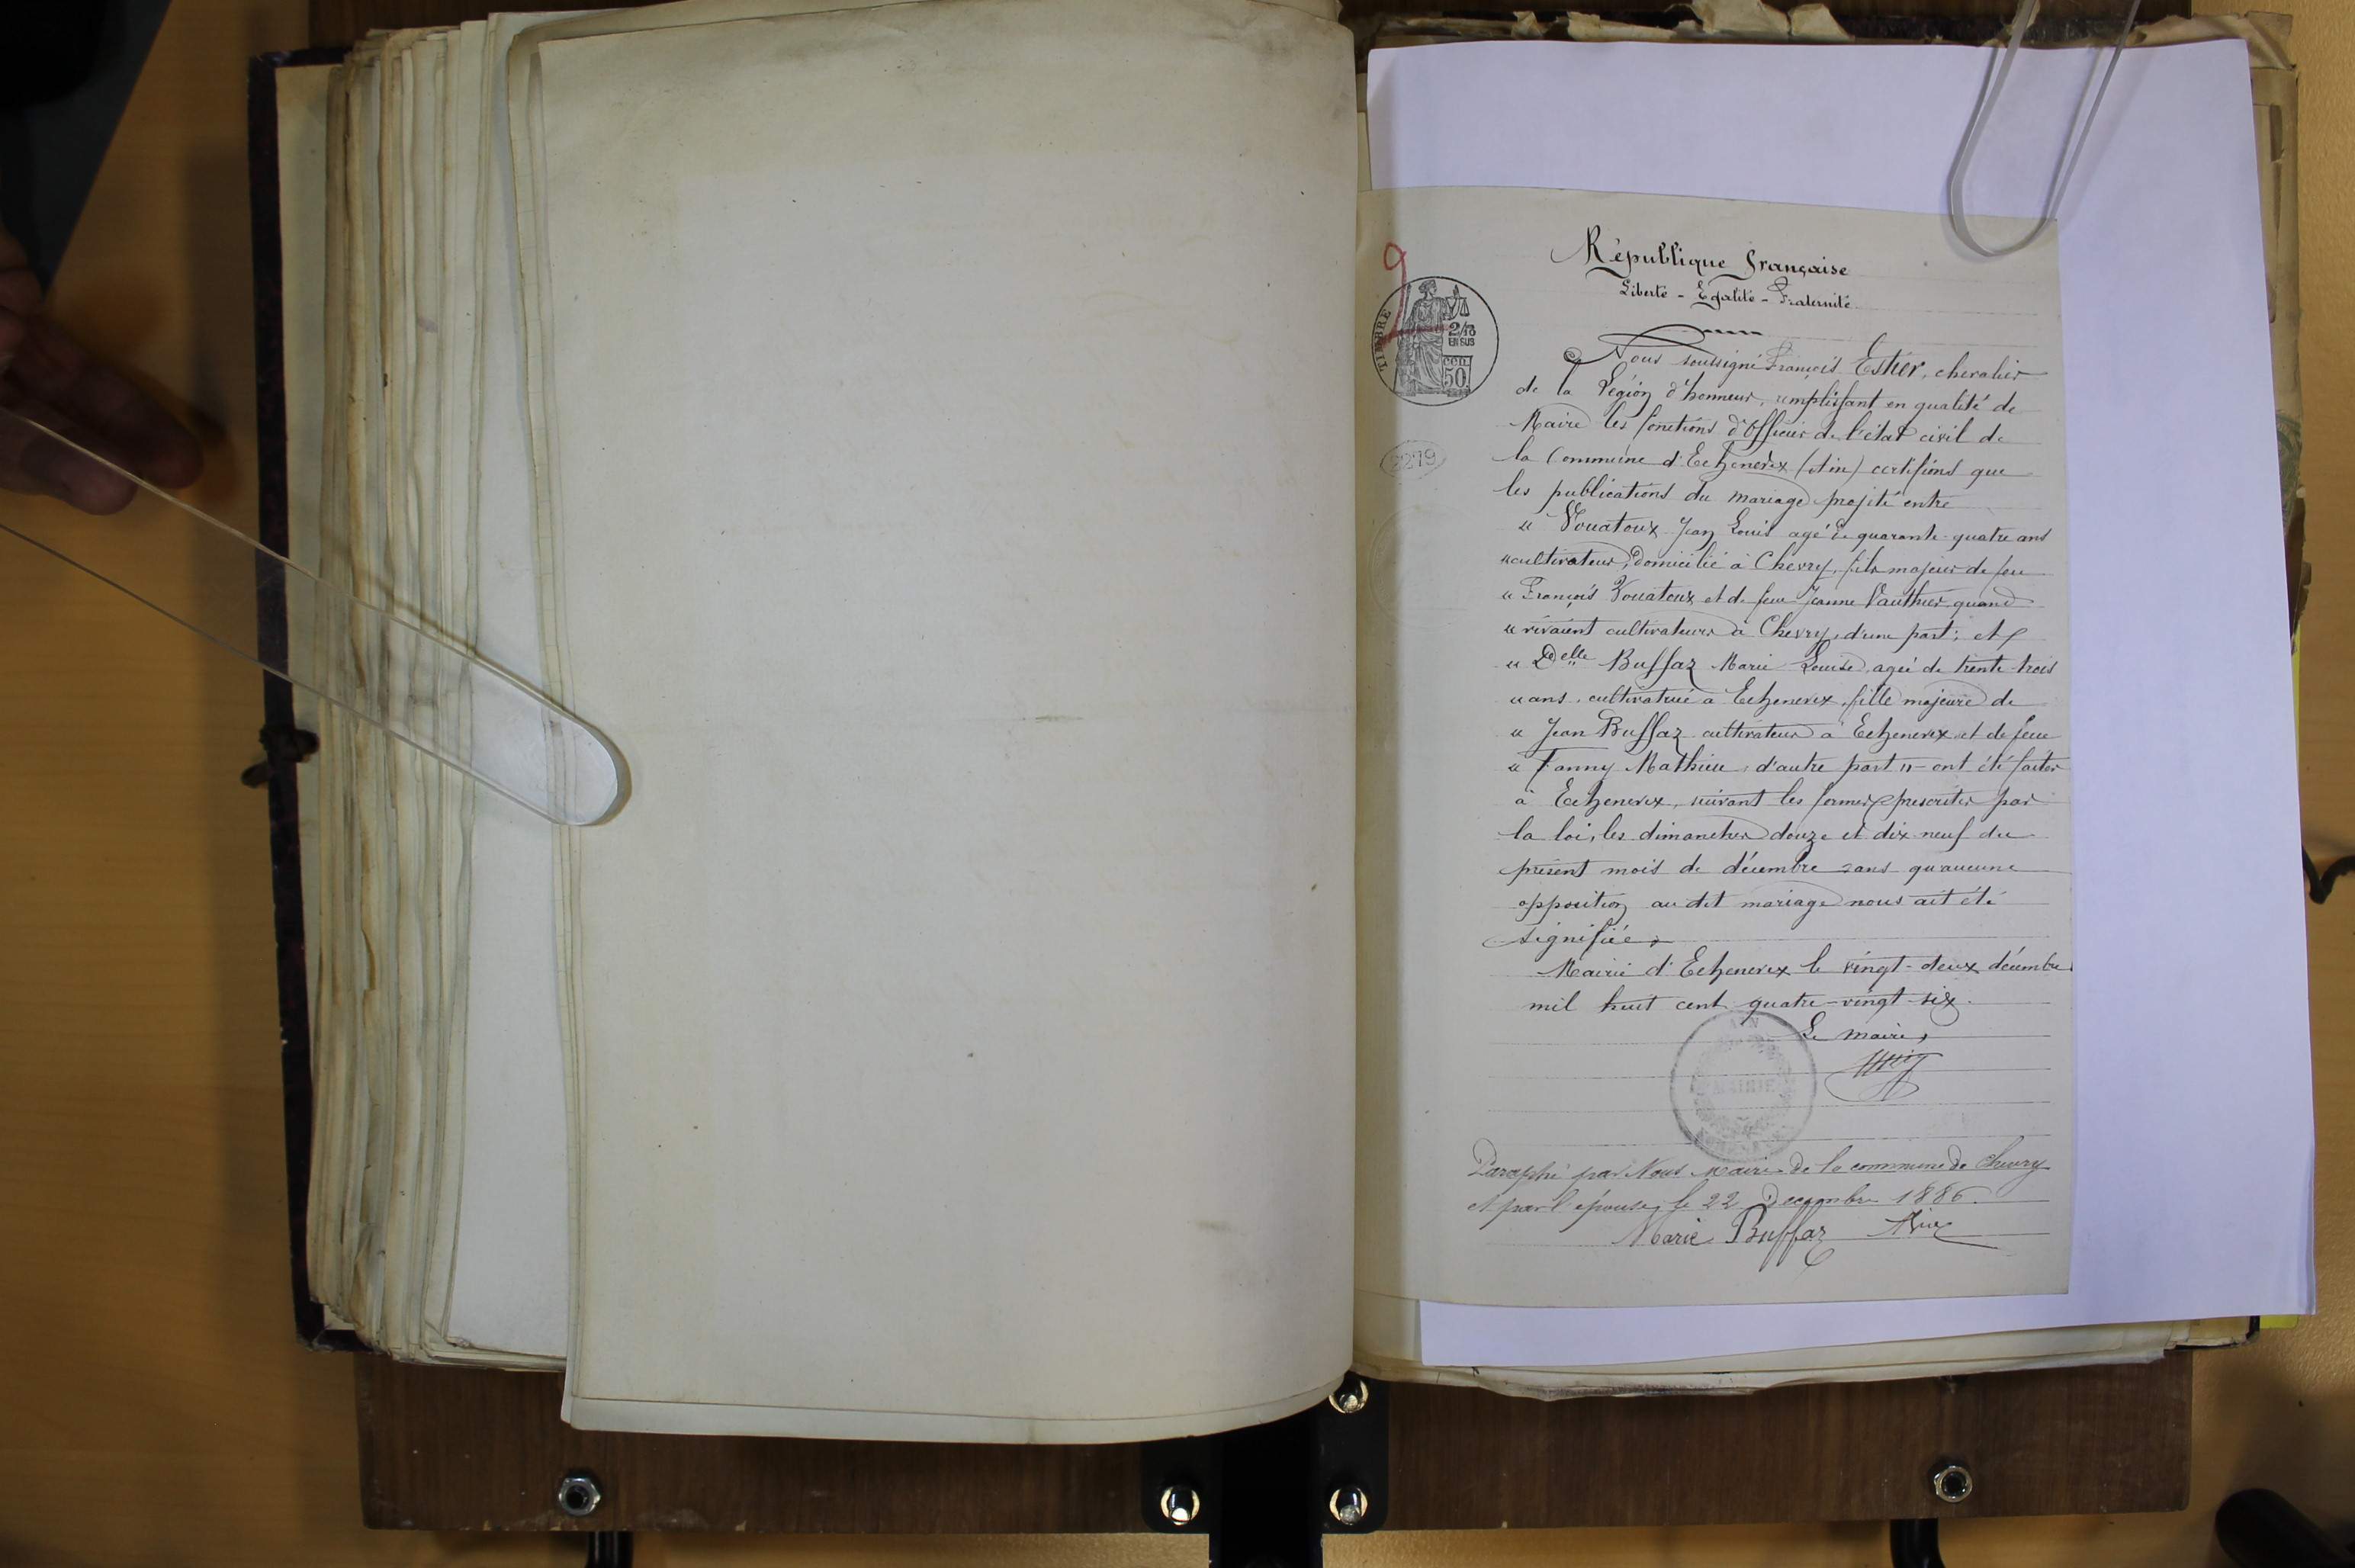 République Française
Liberté - Egalité - Fraternité
TIMBRE
2/10
EN SUS
CEN
50
2219
Nous soussigné François Estier, chevalier
de la Légion d'honneur, remplissant en qualité de
Maire les fonctions d'Officier de l'état civil de
la Commune d'Echenevex (Ain) certifions que
les publications du mariage projeté entre
" Vouatoux Jean Louis agé de quarante-quatre ans
" cultivateur, domicilié à Chevry, fils majeur de feu
" François Vouatoux et de feue Jeanne Vauthier quand
" vivaient cultivateurs à Chevry, d'une part; et
" Delle Buffaz Marie Louise, agée de trente-trois
" ans, cultivatrice à Echenevex, fille majeure de
" Jean Buffaz cultivateur à Echenevex et de feue
" Fanny Mathieu, d'autre part " - ont été faites
à Echenevex, suivant les formes prescrites par
la loi, les dimanches douze et dix neuf du
présent mois de décembre sans qu'aucune
opposition au dit mariage nous ait été
signifiée,
Mairie d'Echenevex le vingt-deux décembre
mil huit cent quatre-vingt-six.
Le maire,
AIN
MAIRIE
Paraphé par Nous Maire de la commune de Chevry
et par l'épouse, le 22 Decembre 1886.
Marie Buffaz